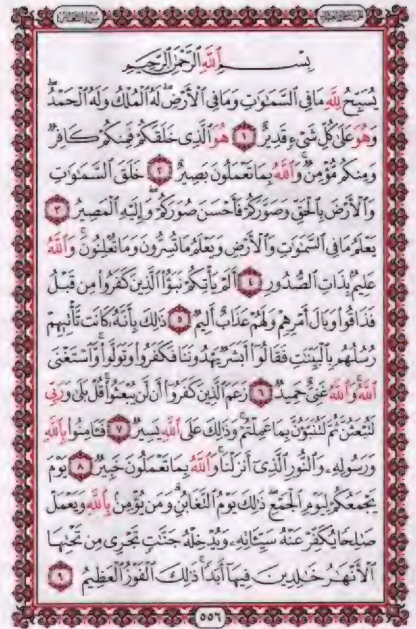 سُورَةُ التَّغَابُنِ
بِسْمِ اللَّهِ الرَّحْمَٰنِ الرَّحِيمِ
يُسَبِّحُ لِلَّهِ مَا فِي السَّمَٰوَٰتِ وَمَا فِي الْأَرْضِ لَهُ الْمُلْكُ وَلَهُ الْحَمْدُ
وَهُوَ عَلَىٰ كُلِّ شَيْءٍ قَدِيرٌ ١ هُوَ الَّذِي خَلَقَكُمْ فَمِنكُمْ كَافِرٌ
وَمِنكُم مُّؤْمِنٌ وَاللَّهُ بِمَا تَعْمَلُونَ بَصِيرٌ ٢ خَلَقَ السَّمَٰوَٰتِ
وَالْأَرْضَ بِالْحَقِّ وَصَوَّرَكُمْ فَأَحْسَنَ صُوَرَكُمْ وَإِلَيْهِ الْمَصِيرُ ٣
يَعْلَمُ مَا فِي السَّمَٰوَٰتِ وَالْأَرْضِ وَيَعْلَمُ مَا تُسِرُّونَ وَمَا تُعْلِنُونَ وَاللَّهُ
عَلِيمٌ بِذَاتِ الصُّدُورِ ٤ أَلَمْ يَأْتِكُمْ نَبَؤُا الَّذِينَ كَفَرُوا مِن قَبْلُ
فَذَاقُوا وَبَالَ أَمْرِهِمْ وَلَهُمْ عَذَابٌ أَلِيمٌ ٥ ذَٰلِكَ بِأَنَّهُ كَانَت تَّأْتِيهِمْ
رُسُلُهُم بِالْبَيِّنَٰتِ فَقَالُوا أَبَشَرٌ يَهْدُونَنَا فَكَفَرُوا وَتَوَلَّوا وَّاسْتَغْنَى
اللَّهُ وَاللَّهُ غَنِيٌّ حَمِيدٌ ٦ زَعَمَ الَّذِينَ كَفَرُوا أَن لَّن يُبْعَثُوا قُلْ بَلَىٰ وَرَبِّي
لَتُبْعَثُنَّ ثُمَّ لَتُنَبَّؤُنَّ بِمَا عَمِلْتُمْ وَذَٰلِكَ عَلَى اللَّهِ يَسِيرٌ ٧ فَآمِنُوا بِاللَّهِ
وَرَسُولِهِ وَالنُّورِ الَّذِي أَنزَلْنَا وَاللَّهُ بِمَا تَعْمَلُونَ خَبِيرٌ ٨ يَوْمَ
يَجْمَعُكُمْ لِيَوْمِ الْجَمْعِ ذَٰلِكَ يَوْمُ التَّغَابُنِ وَمَن يُؤْمِن بِاللَّهِ وَيَعْمَلْ
صَٰلِحًا يُكَفِّرْ عَنْهُ سَيِّـَٔاتِهِ وَيُدْخِلْهُ جَنَّٰتٍ تَجْرِي مِن تَحْتِهَا
الْأَنْهَٰرُ خَٰلِدِينَ فِيهَا أَبَدًا ذَٰلِكَ الْفَوْزُ الْعَظِيمُ ٩
٥٥٦